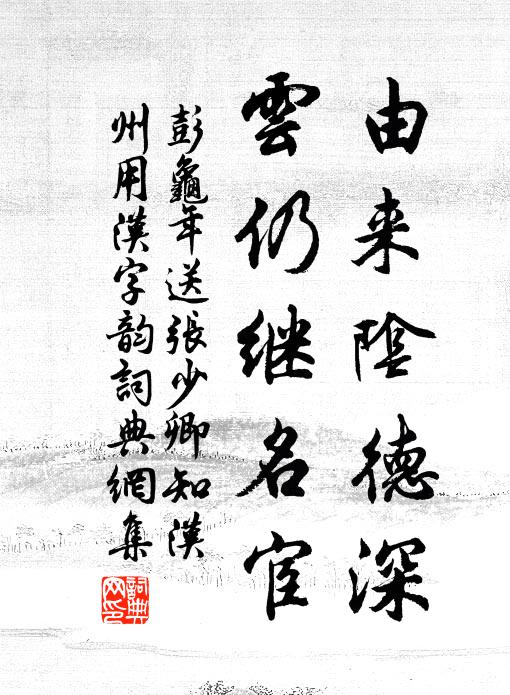 由来陰德深
雲仍继名宦
彭龜年送張少卿知漢
州用漢字韵詞典網集
詞典
网印